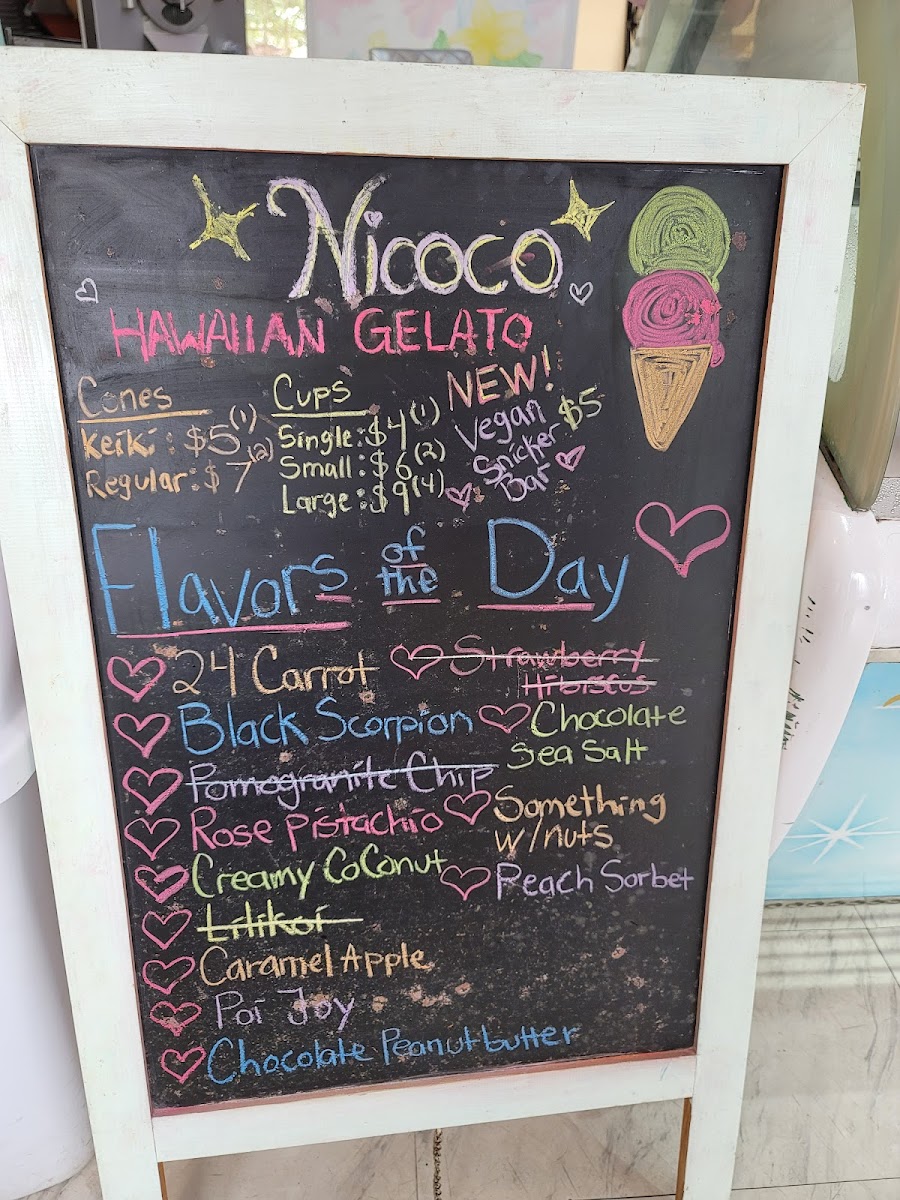 Nicoco
HAWAIIAN GELATO
Cones
Keiki: $5 (1)
Regular: $7 (2)
Cups
Single: $4 (1)
Small: $6 (2)
Large: $9 (4)
NEW!
Vegan $5
Snicker
Bar
Flavors of the Day
24 Carrot
Black Scorpion
Pomogranite Chip
Rose Pistachio
Creamy Coconut
Lilikoi
Caramel Apple
Poi Joy
Chocolate Peanutbutter
Strawberry
Hibiscus
Chocolate
Sea Salt
Something
w/nuts
Peach Sorbet